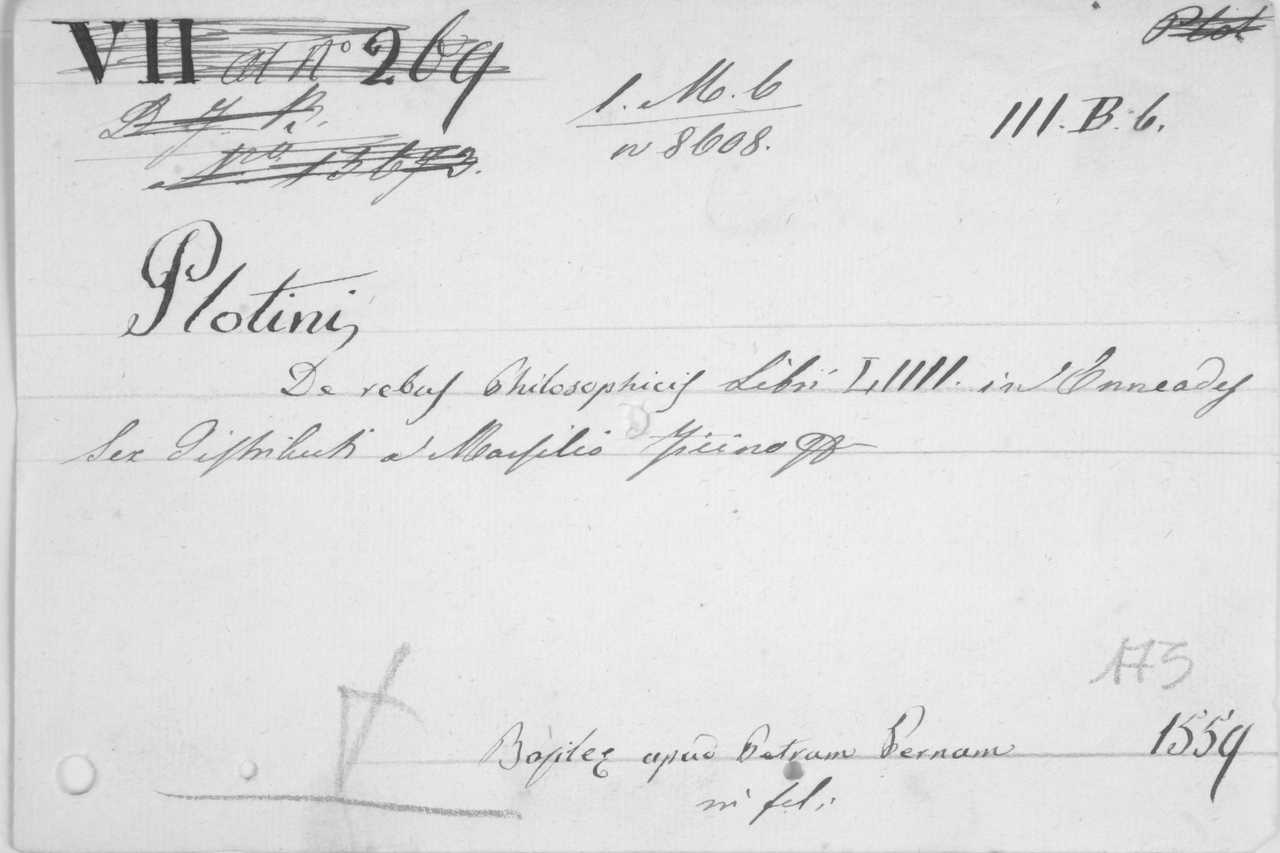 VII at No 269
Plot
I. M. 6
n 8608.
III. B. 6.
No. 15693.
Plotini,
De rebus Philosophicis Libri LIIII. in Enneades
Sex Distributi a Marsilio Ficino
173
Basileę apud Petrum Pernam
1559
in fol: